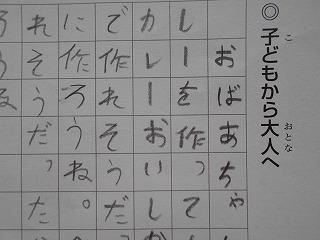 ◎子どもから大人へ
こ
おとな
おばあちゃ
レーを作って
カレーおいしか
で作れそうだ
に作ろうね。
れそうだった